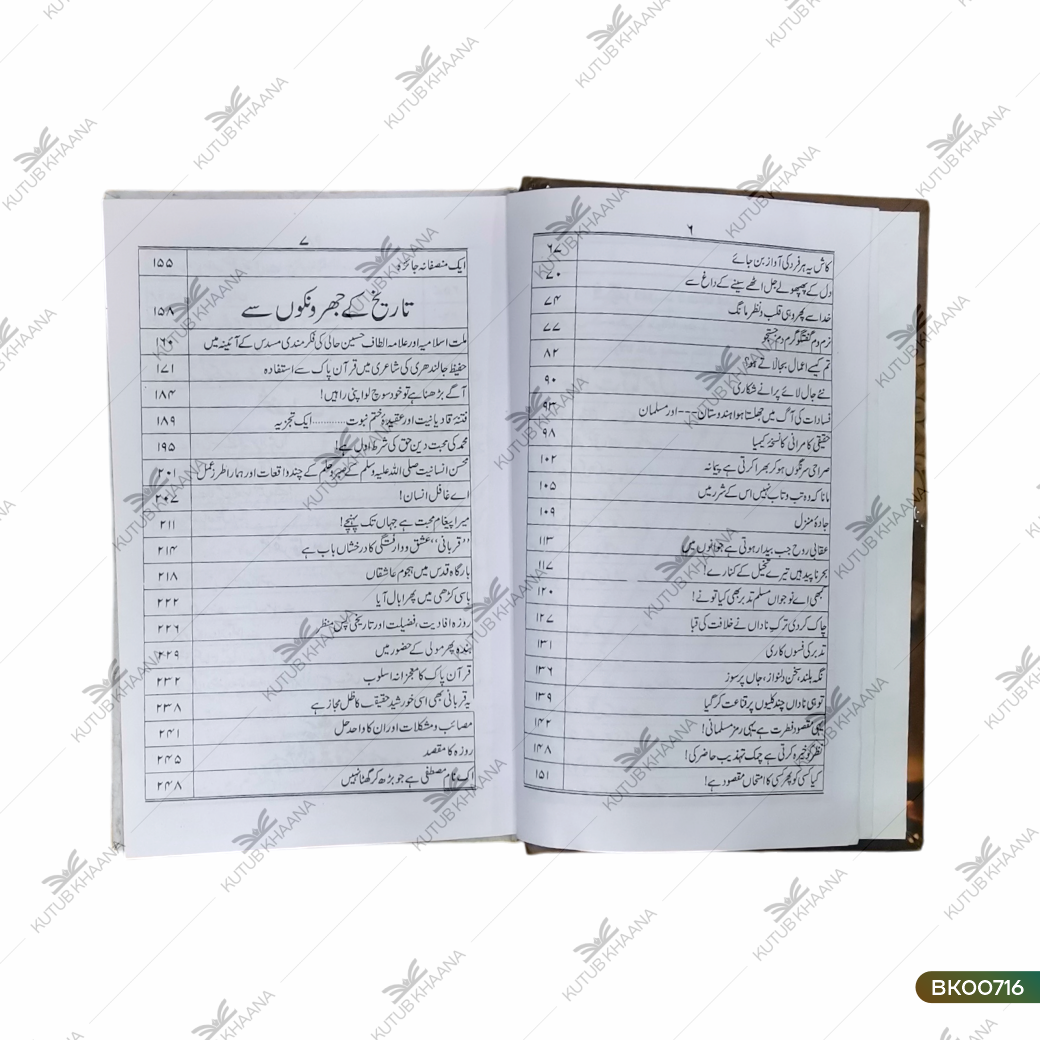 ۶
کاش یہ ہر فرد کی آواز بن جائے ۶۷
دل کے پھپھولے جل اٹھے سینے کے داغ سے ۷۰
خدا سے پھر وہی قلب و نظر مانگ ۷۴
نرم دم گفتگو گرم دم جستجو ۷۷
تم کیسے اعمال بجا لاتے ہو؟ ۸۲
نئے جال لائے پرانے شکاری ۹۰
فسادات کی آگ میں جھلستا ہوا ہندوستان۔۔۔اور مسلمان ۹۳
حقیقی کامرانی کا نسخۂ کیمیا ۹۸
صراحی سرنگوں ہو کر بھرا کرتی ہے پیمانہ ۱۰۲
مانا کہ وہ تب و تاب نہیں اس کے شرر میں ۱۰۵
جادۂ منزل ۱۰۹
عقابی روح جب بیدار ہوتی ہے جوانوں میں ۱۱۳
بحر ناپید ہیں تیرے تخیل کے کنارے! ۱۱۷
کبھی اے نوجواں مسلم تدبر بھی کیا تو نے! ۱۲۰
چاک کر دی ترک ناداں نے خلافت کی قبا ۱۲۷
تدبر کی فسوں کاری ۱۳۱
نگہ بلند، سخن دلنواز، جاں پرسوز ۱۳۶
تو ہی ناداں چند کلیوں پر قناعت کر گیا ۱۳۹
یہی مقصود فطرت ہے یہی رمز مسلمانی! ۱۴۲
نظر کو خیرہ کرتی ہے چمک تہذیب حاضر کی! ۱۴۸
کیا کسی کو پھر کسی کا امتحاں مقصود ہے! ۱۵۱
۷
ایک منصفانہ جائزہ ۱۵۵
تاریخ کے جھرونکوں سے ۱۵۸
ملت اسلامیہ اور علامہ الطاف حسین حالی کی فکر مندی مسدس کے آئینہ میں ۱۶۰
حفیظ جالندھری کی شاعری میں قرآن پاک سے استفادہ ۱۷۱
آگے بڑھنا ہے تو خود سوچ لو اپنی راہیں! ۱۸۴
فتنۂ قادیانیت اور عقیدۂ ختم نبوت ............ ایک تجزیہ ۱۸۹
محمد کی محبت دین حق کی شرط اول ہے! ۱۹۵
محسن انسانیت صلی اللہ علیہ وسلم کے صبر و حلم کے چند واقعات اور ہمارا طرز عمل ۲۰۱
اے غافل انسان! ۲۰۷
میرا پیغام محبت ہے جہاں تک پہنچے! ۲۱۱
’’قربانی‘‘ عشق و وارفتگی کا درخشاں باب ہے ۲۱۴
بارگاہ قدس میں ہجوم عاشقاں ۲۱۸
باسی کڑھی میں پھر ابال آیا ۲۲۲
روزہ افادیت، فضیلت اور تاریخی پس منظر ۲۲۶
بندہ پھر مولی کے حضور میں ۲۲۹
قرآن پاک کا معجزانہ اسلوب ۲۳۲
یہ قربانی بھی اسی خورشید حقیقت کا ظل مجاز ہے ۲۳۸
مصائب و مشکلات اور ان کا واحد حل ۲۴۱
روزہ کا مقصد ۲۴۵
اک نام مصطفی ہے جو بڑھ کر گھٹا نہیں ۲۴۸
KUTUB KHAANA
BK00716